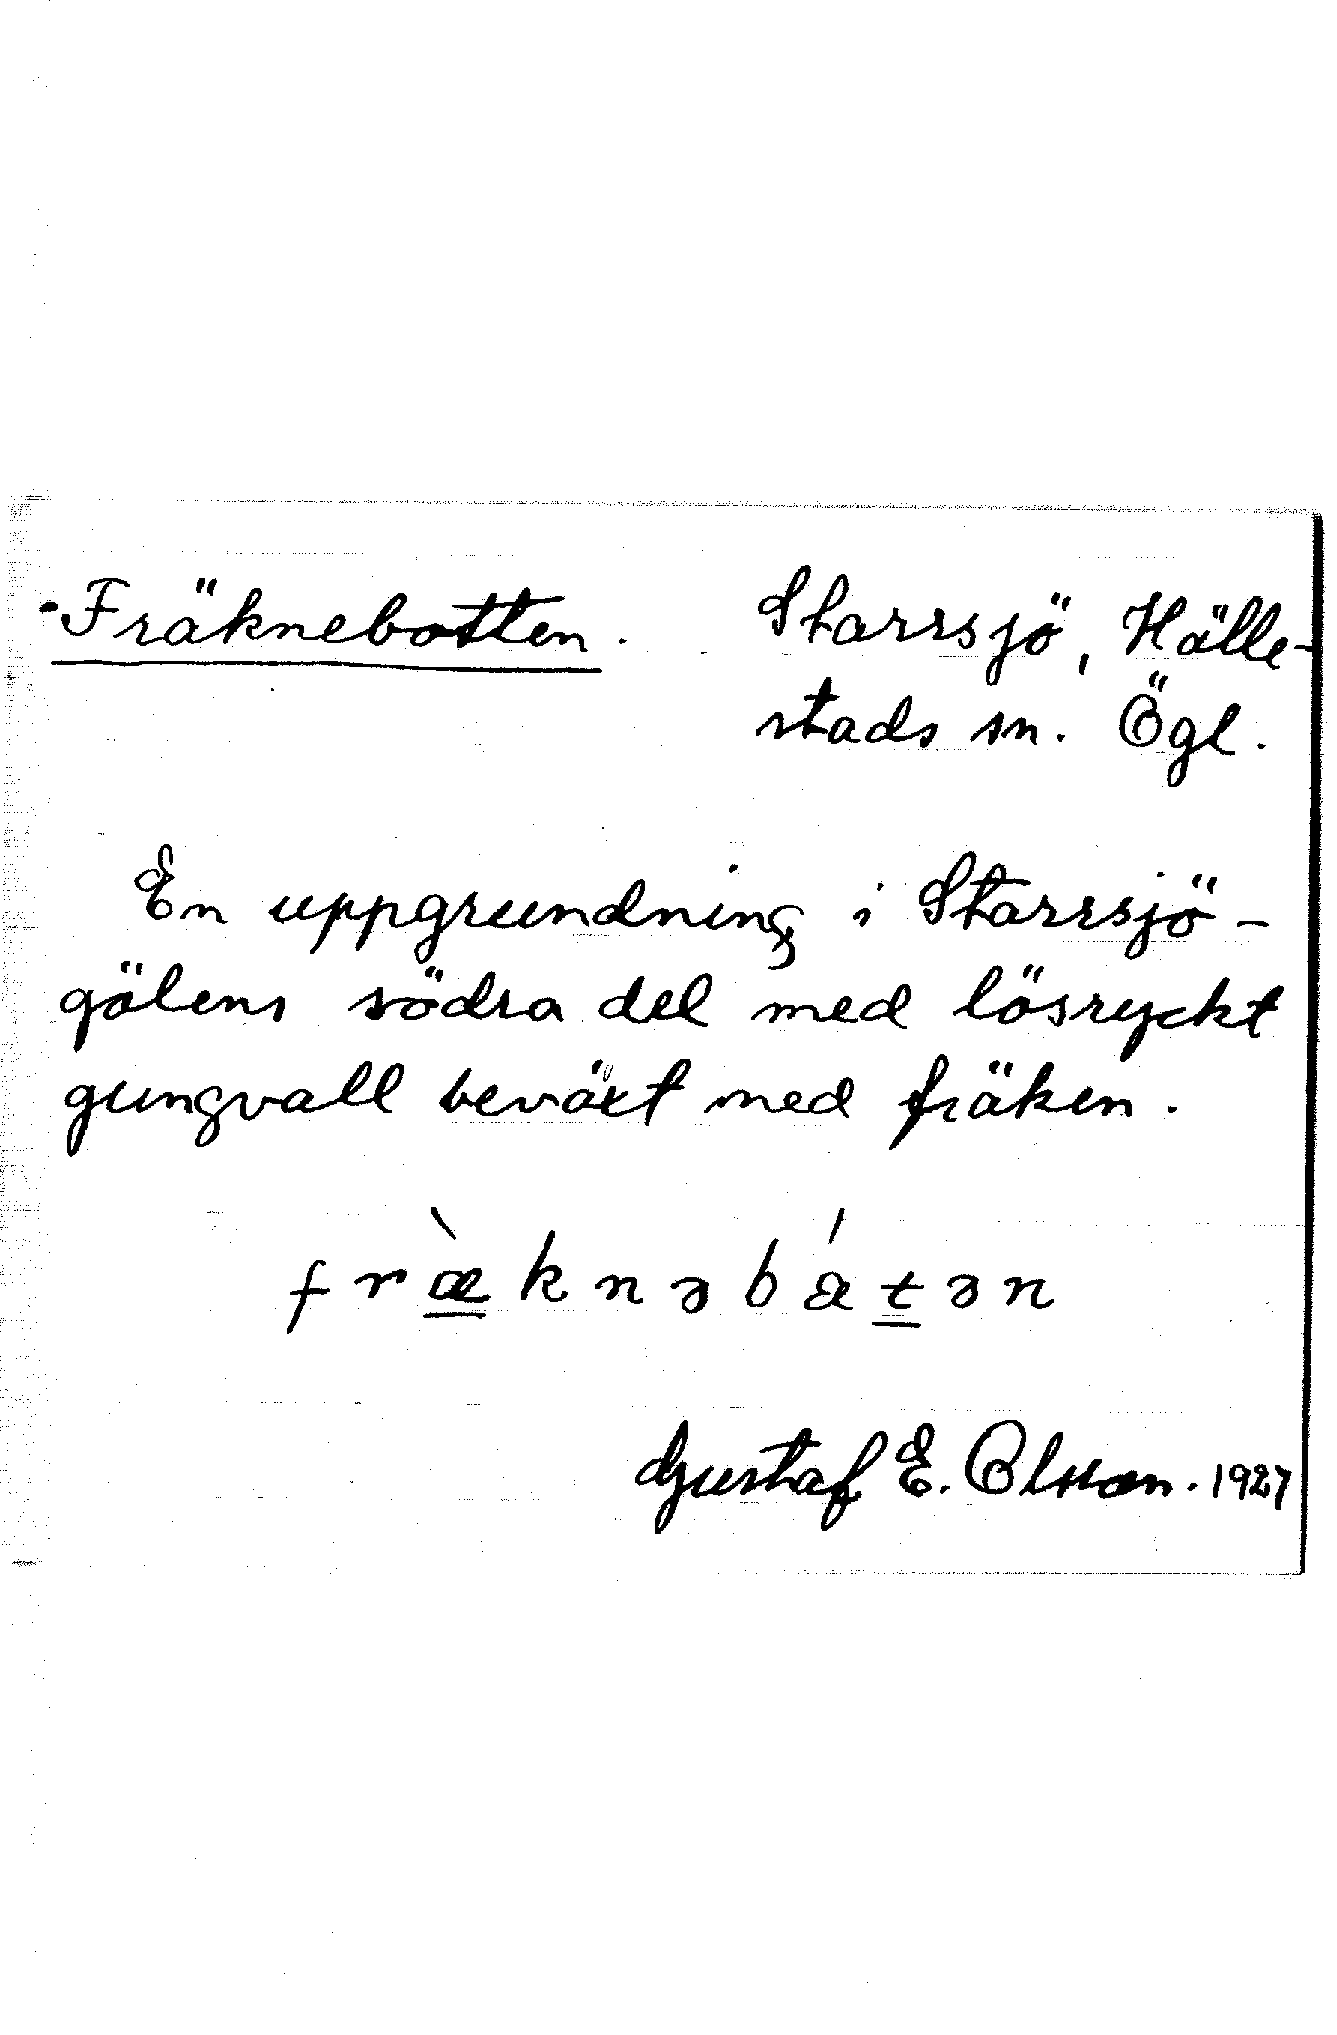 Fräknebotten. Starrsjö, Hälle-
stads sn. Ögl.
En uppgrundning i Starrsjö-
gölens södra del med lösryckt
gungvall beväxt med fräken.
fræ̀knəbátən
Gustaf E. Olsson. 1927